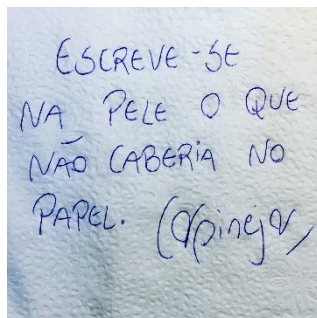 ESCREVE-SE
NA PELE O QUE
NÃO CABERIA NO
PAPEL. Carpinejar